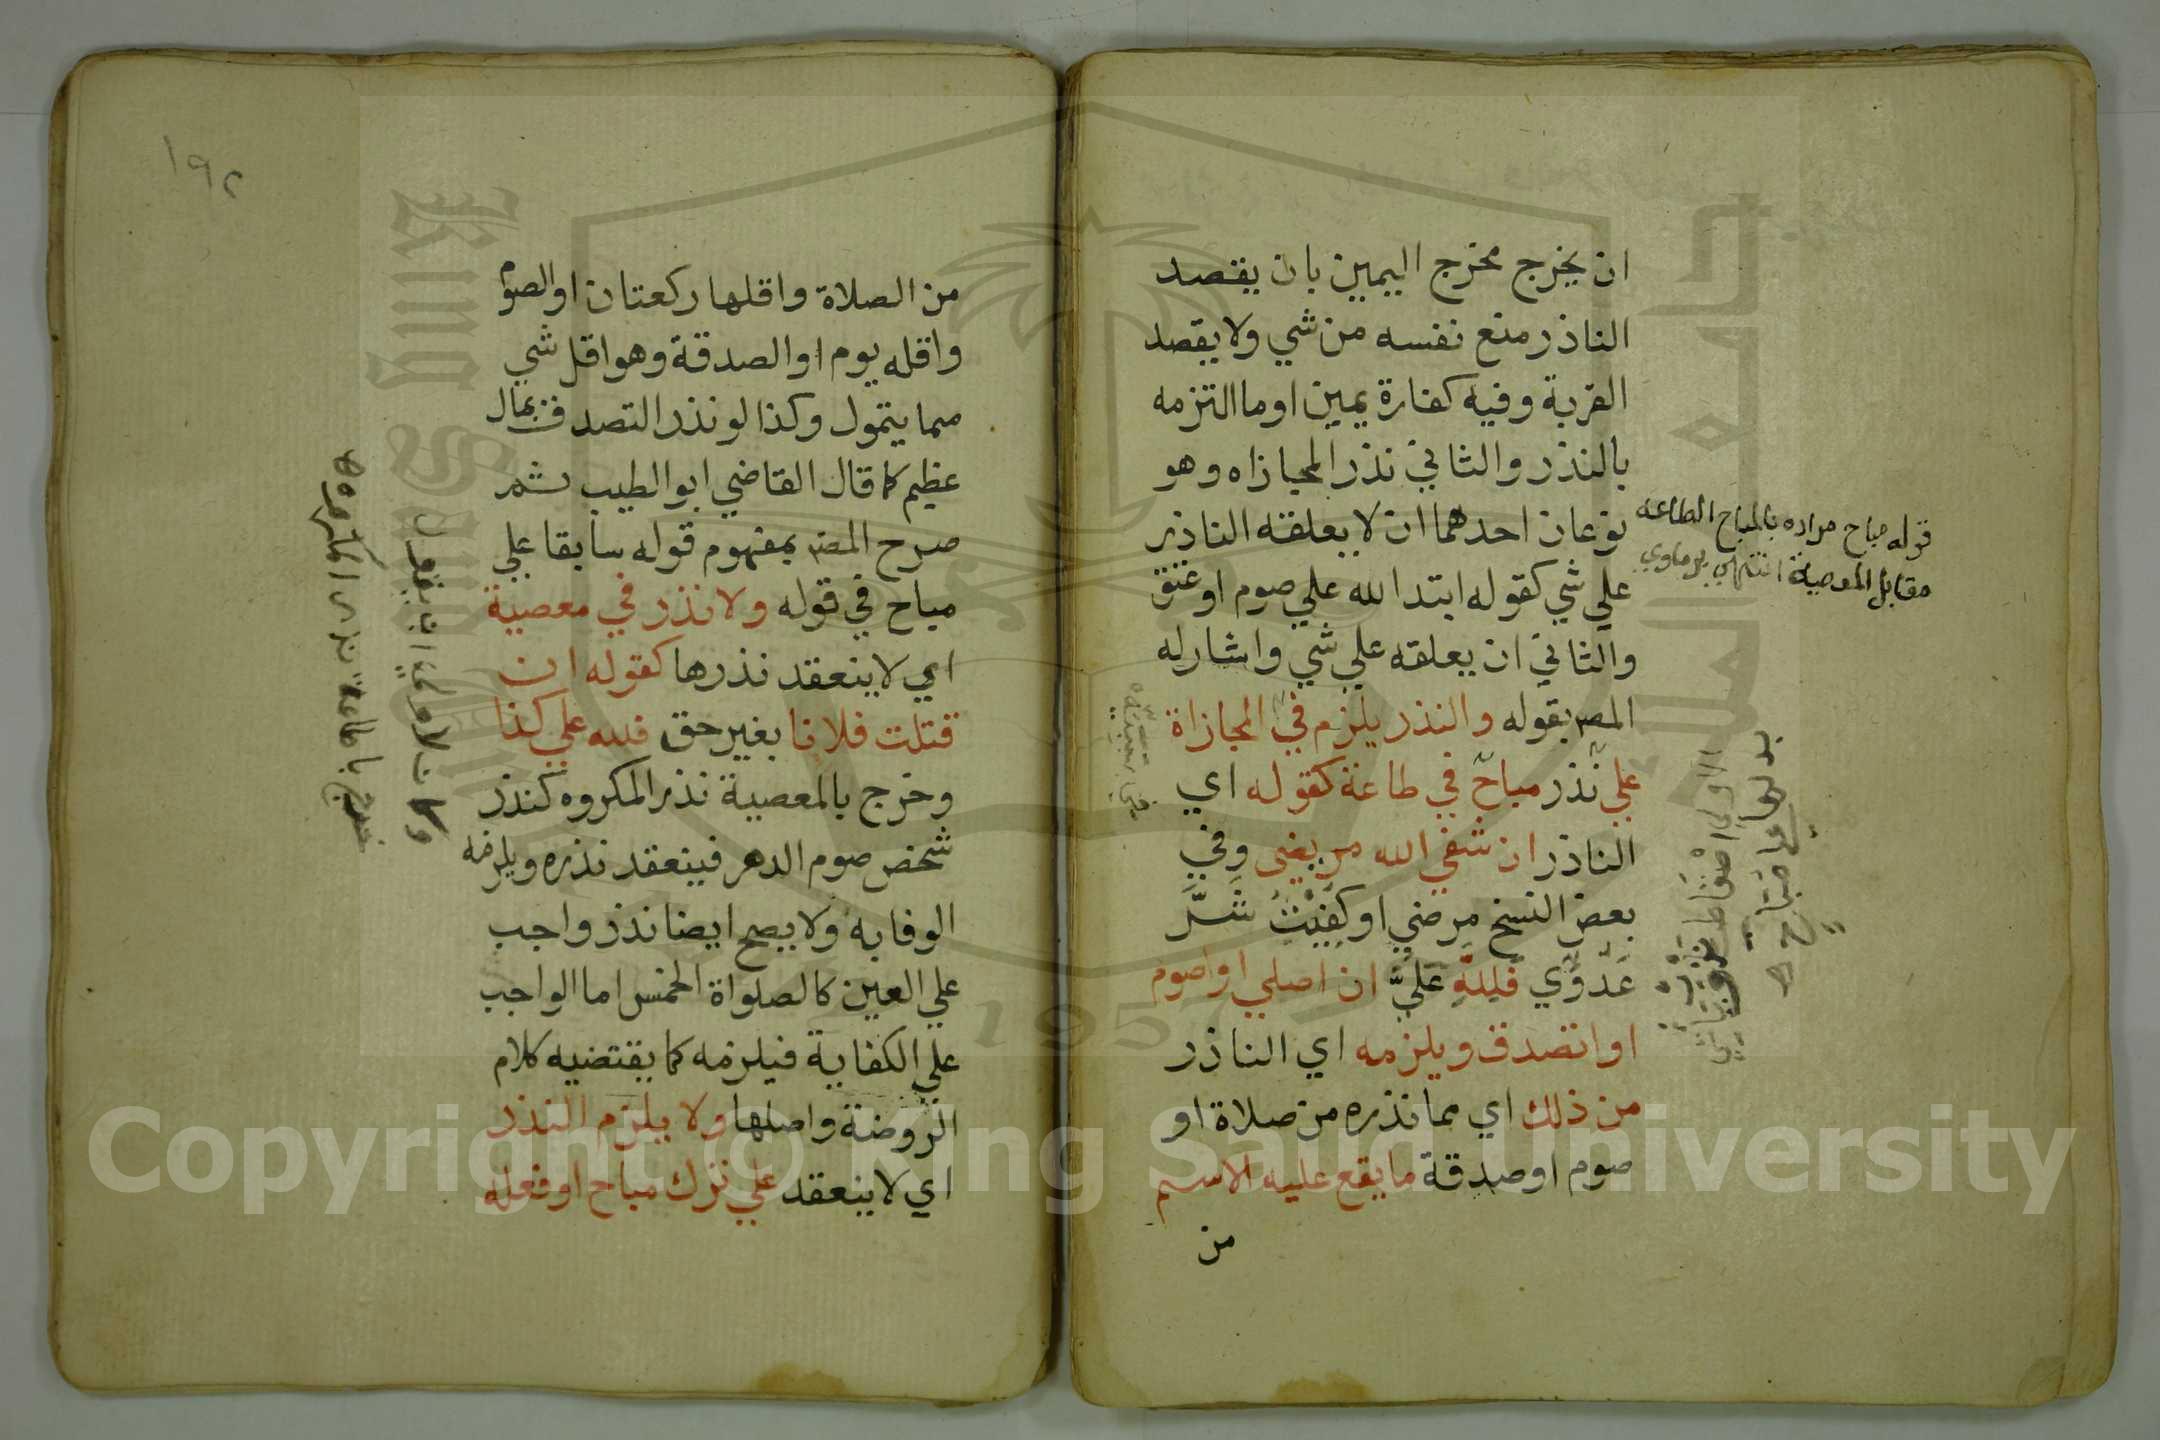 ان يخرج مخرج اليمين بان يقصد
الناذر منع نفسه من شي ولا يقصد
القربة وفيه كفارة يمين او ما التزمه
بالنذر والثاني نذر المجازاه وهو
نوعان احدهما ان لا يعلقه الناذر
علي شي كقوله ابتدا لله علي صوم او عتق
والثاني ان يعلقه علي شي واشار له
المص بقوله والنذر يلزم في المجازاة
علي نذر مباح في طاعة كقوله اي
الناذر ان شفي الله مريضي وفي
بعض النسخ مرضي او كفيت شر
عدوي فلله علي ان اصلي او اصوم
او اتصدق ويلزمه اي الناذر
من ذلك اي مما نذره من صلاة او
صوم او صدقة ما يقع عليه الاسم
من
قوله مباح مراده بالمباح الطاعه
مقابل المعصية انتهي برماوي
١٩٢
من الصلاة واقلها ركعتان او الصوم
واقله يوم او الصدقة وهو اقل شي
مما يتمول وكذا لو نذر التصدق بمال
عظيم كما قال القاضي ابو الطيب ثم
صرح المص بمفهوم قوله سابقا علي
مباح في قوله ولا نذر في معصية
اي لا ينعقد نذرها كقوله ان
قتلت فلانا بغير حق فلله علي كذا
وخرج بالمعصية نذر المكروه كنذر
شخص صوم الدهر فينعقد نذره ويلزمه
الوفا به ولا يصح ايضا نذر واجب
علي العين كالصلواة الخمس اما الواجب
علي الكفاية فيلزمه كما يقتضيه كلام
الروضة واصلها ولا يلزم النذر
اي لا ينعقد علي ترك مباح او فعله
Copyright © King Saud University
King Saud
1957